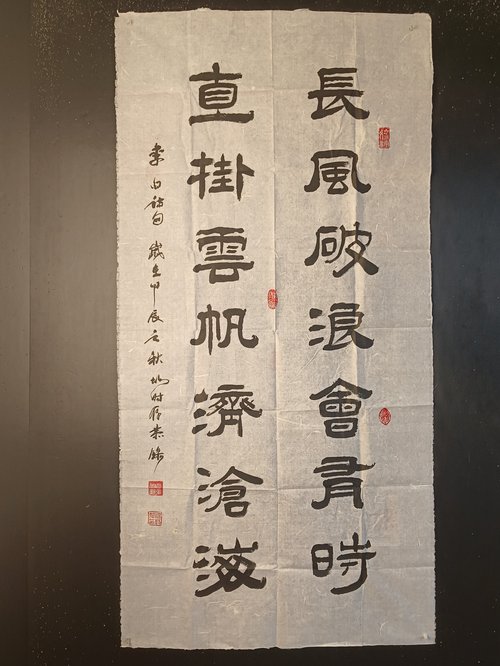 長風破浪會有時
直掛雲帆濟滄海
李白詩句 歲在甲辰之秋